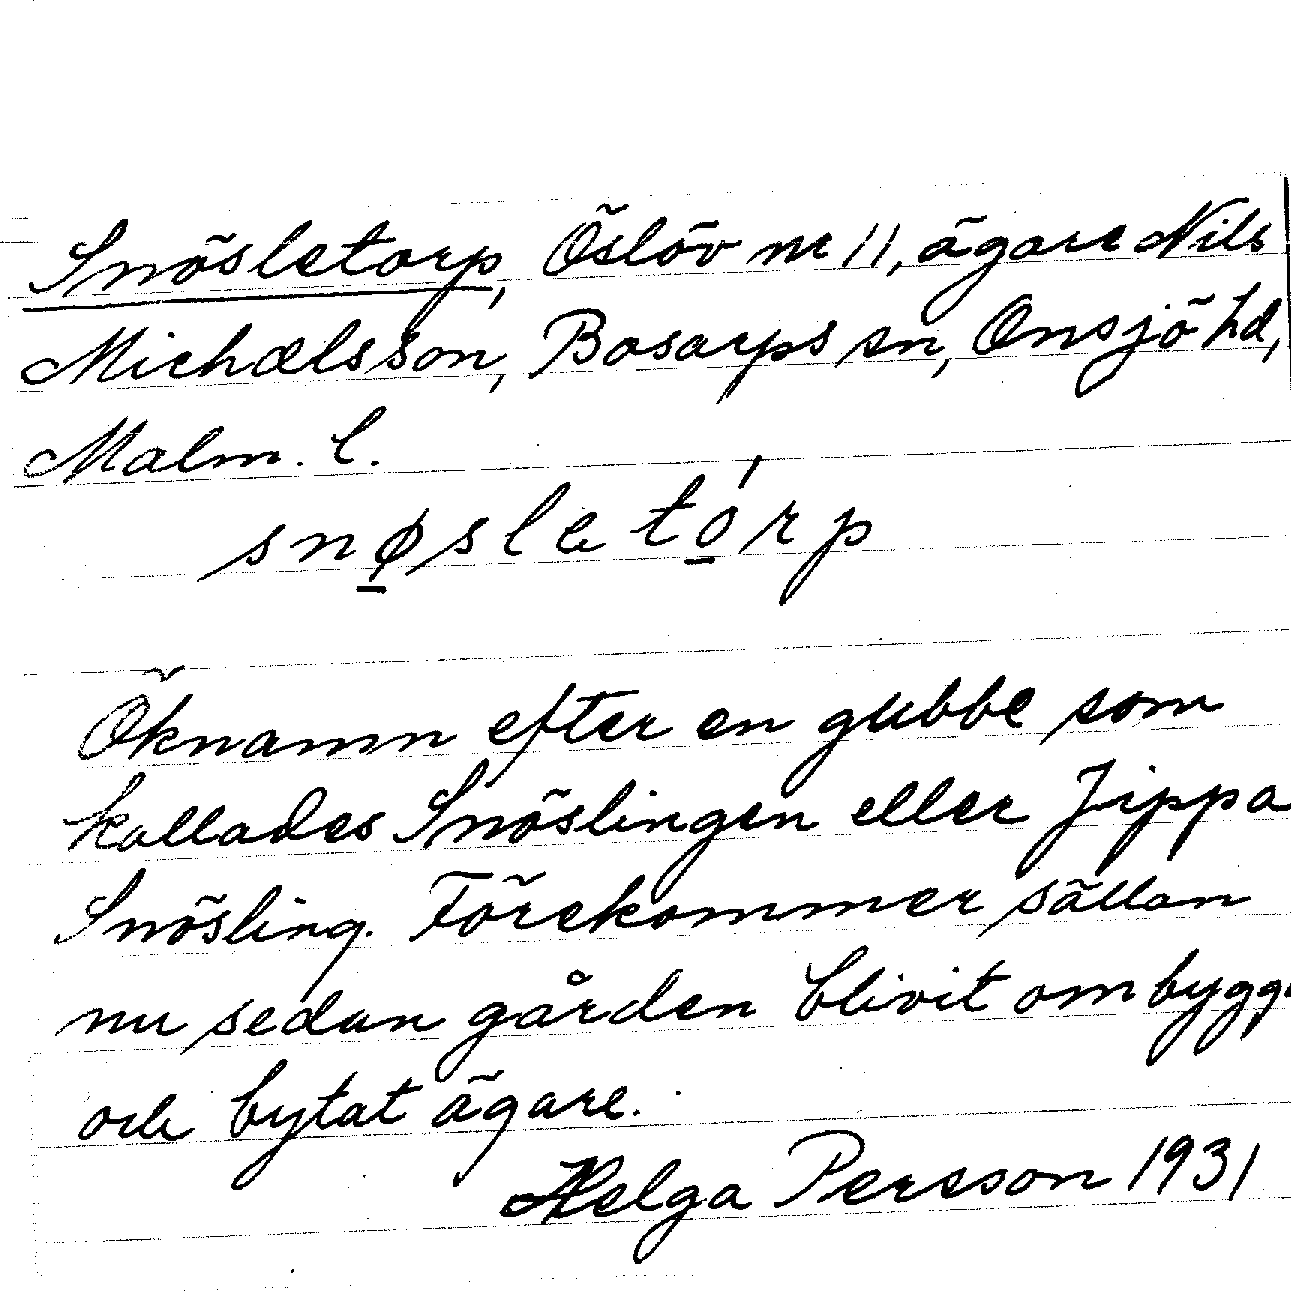 Snösletorp, Öslöv nr 11, ägare Nils
Michælsson, Bosarps sn, Onsjö hd,
Malm. l.
snøsletórp
Öknamn efter en gubbe som
kallades Snöslingen eller Jippa
Snösling. Förekommer sällan
nu sedan gården blivit ombygg
och bytat ägare.
Helga Persson 1931